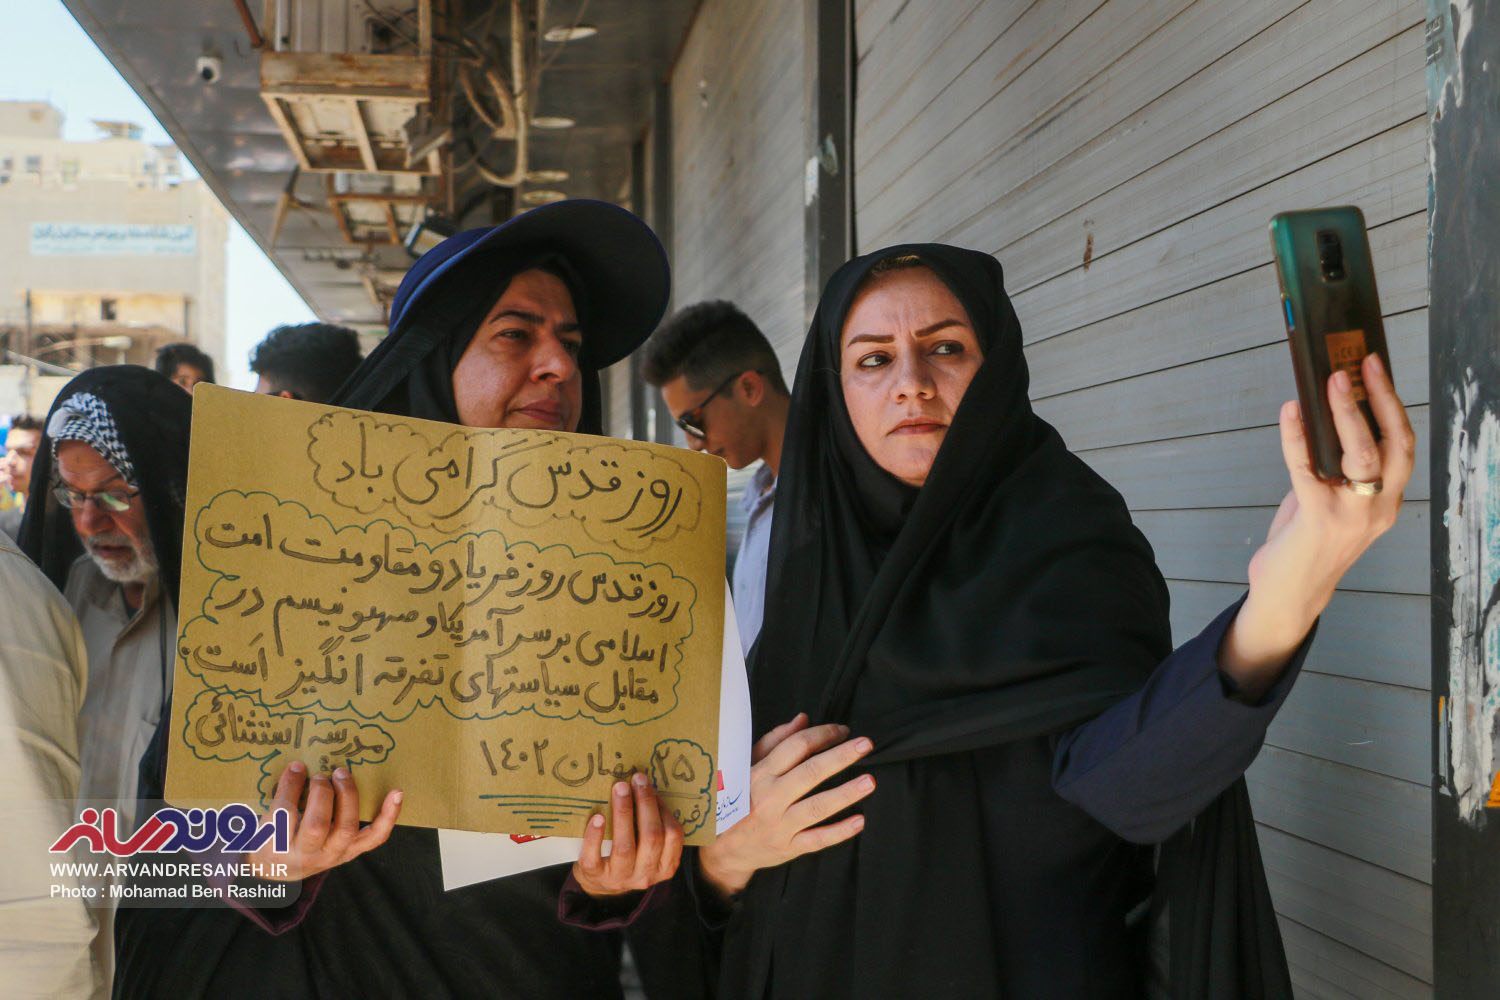 روز قدس گرامی باد
روز قدس روز فریاد و مقاومت امت
اسلامی بر سر آمریکا و صهیونیسم در
مقابل سیاستهای تفرقه انگیز است.
مدرسه استثنائی
۲۵ رمضان ۱۴۰۲
اروند رسانه
WWW.ARVANDRESANEH.IR
Photo : Mohamad Ben Rashidi